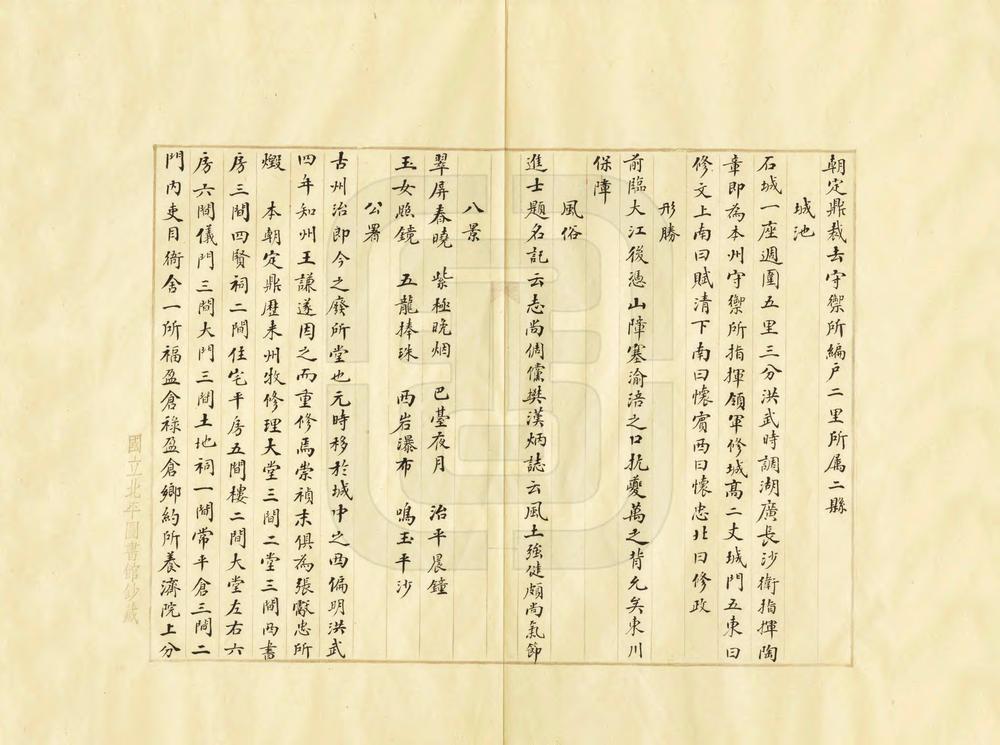 朝定鼎裁去守禦所編户二里所属二縣
城池
石城一座週圍五里三分洪武時調湖廣長沙衛指揮陶
章即為本州守禦所指揮領軍修城高二丈城門五東曰
修文上南曰賦清下南曰懷賓西曰懷忠北曰修政
形勝
前臨大江後憑山障塞渝涪之口扼夔萬之背允矣東川
保障
風俗
進士題名記云志尚倜儻樊漢炳誌云風土強健頗尚氣節
八景
翠屏春曉 紫極晚烟 巴臺夜月 治平晨鐘
玉女照鏡 五龍捧珠 西岩瀑布 鳴玉平沙
公署
古州治即今之廢所堂也元時移於城中之西偏明洪武
四年知州王謙遂因之而重修焉崇禎末俱為張獻忠所
燬 本朝定鼎歷来州牧修理大堂三間二堂三間西書
房三間四賢祠二間住宅平房五間樓二間大堂左右六
房六間儀門三間大門三間土地祠一間常平倉三間二
門内吏目衙舍一所福盈倉禄盈倉鄉約所養濟院上分
國立北平圖書館鈔藏